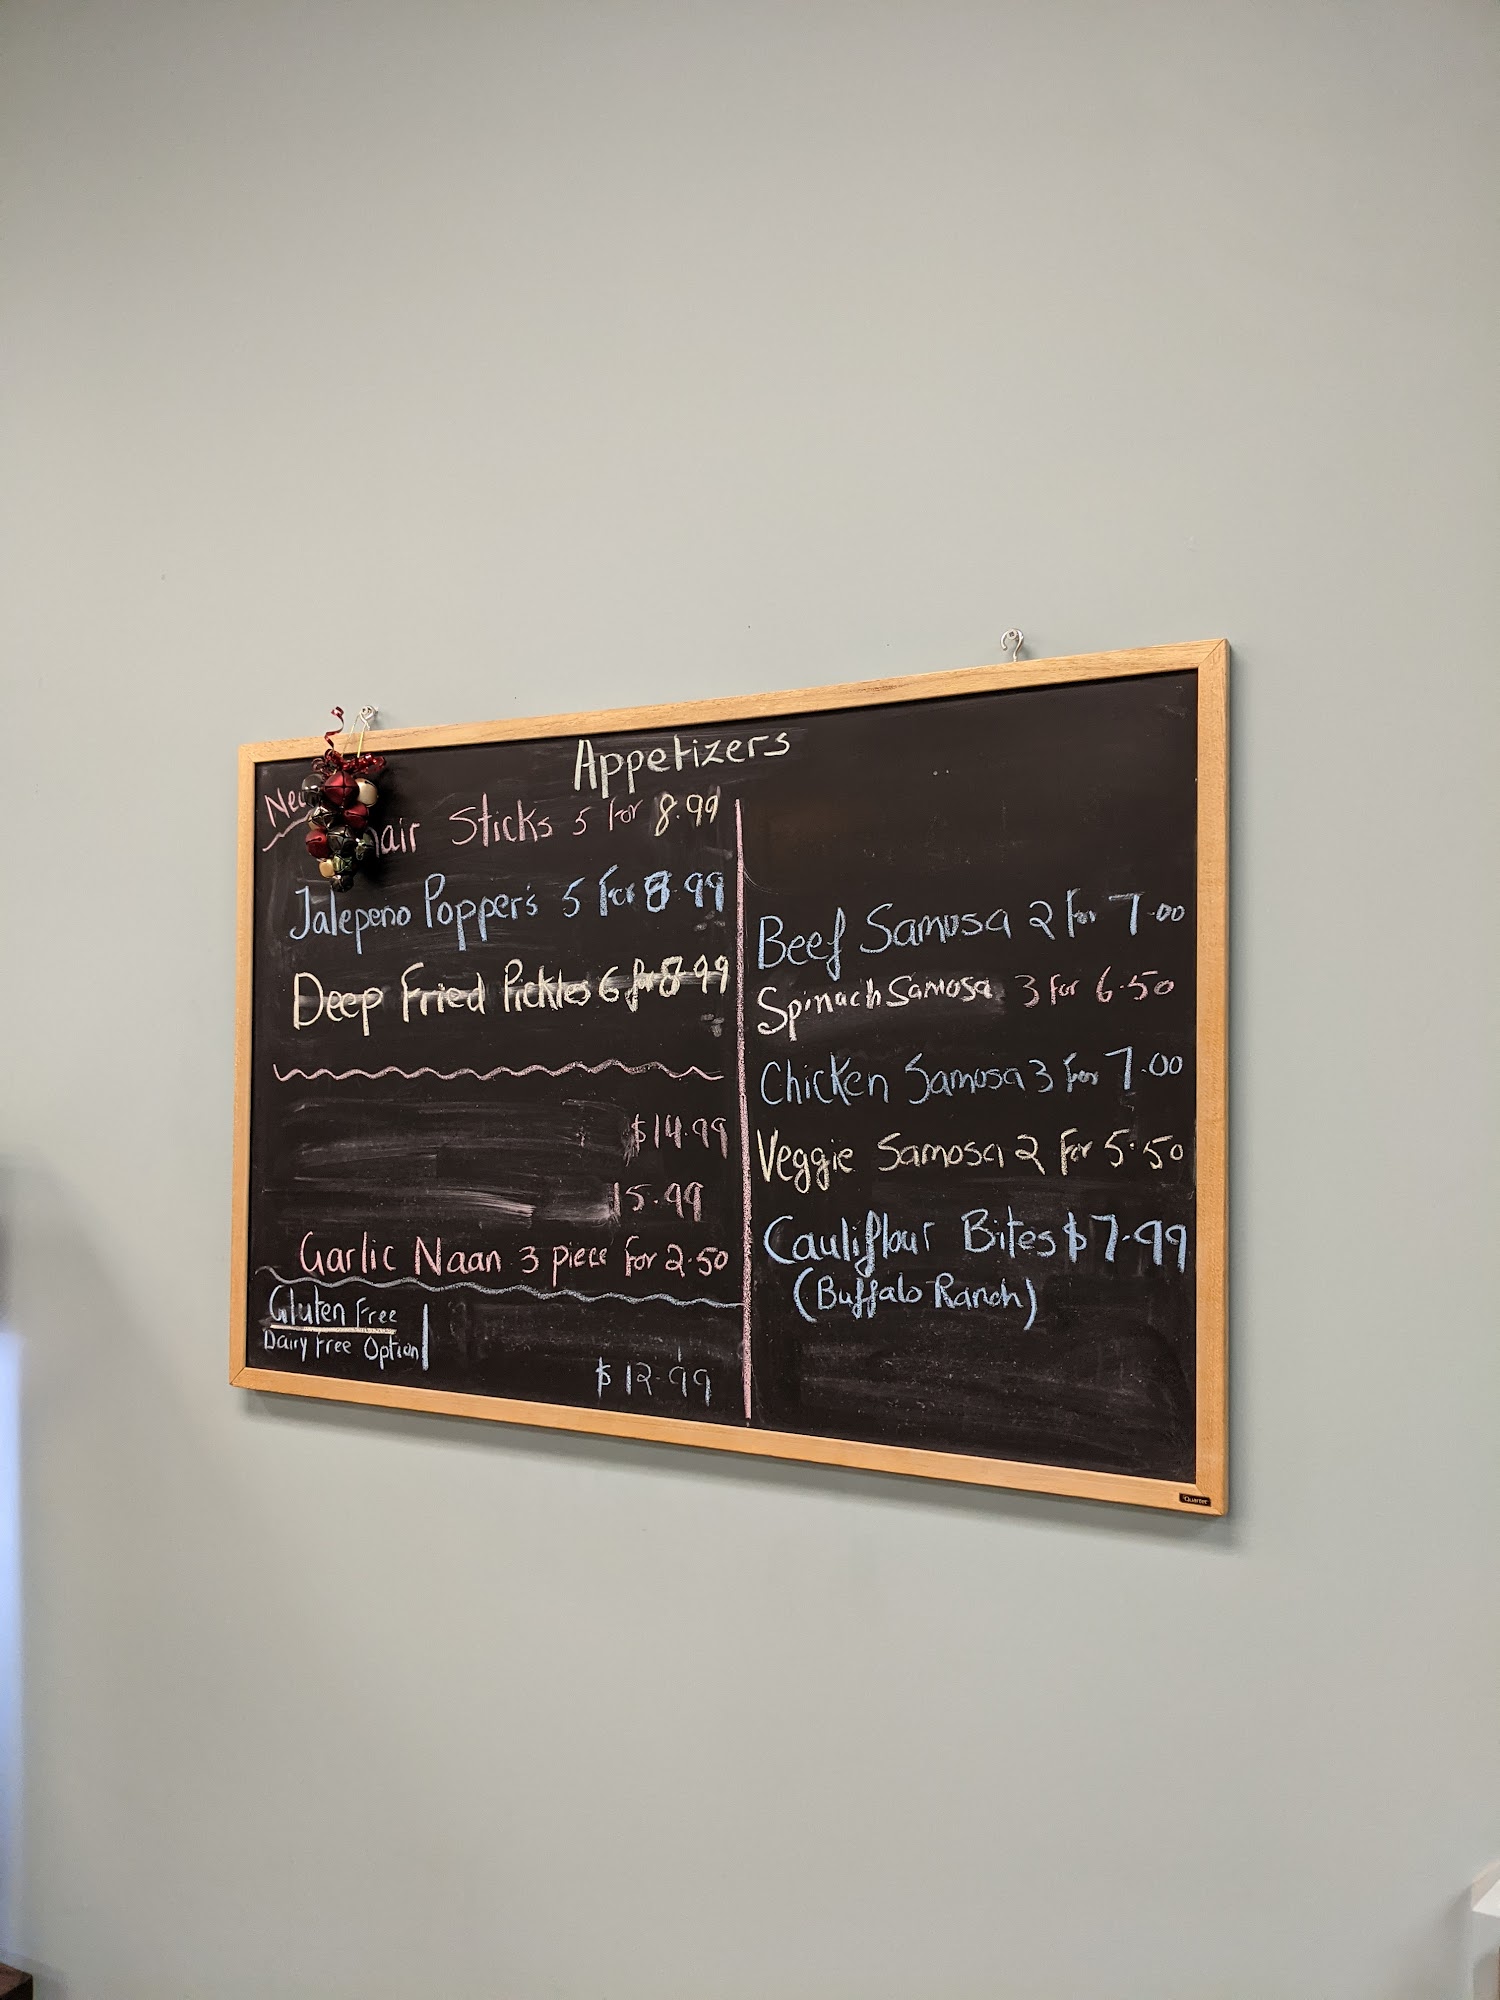 Appetizers
Sticks 5 for 8.99
Jalepeno Popper's 5 For 8.99
Deep Fried Pickles 6 for 8.99
$14.99
15.99
Garlic Naan 3 piece for 2.50
Gluten Free
Dairy Free Option
$12.99
Beef Samosa 2 For 7.00
Spinach Samosa 3 For 6.50
Chicken Samosa 3 For 7.00
Veggie Samosa 2 For 5.50
Cauliflour Bites $7.99
(Buffalo Ranch)
Quartet